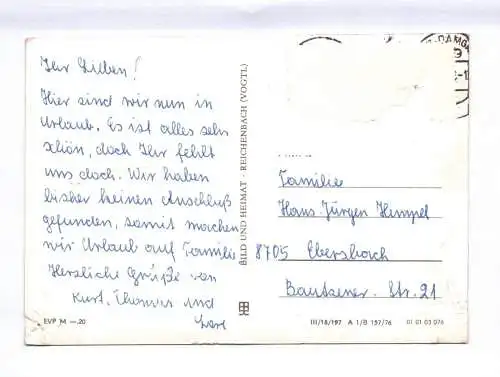 Ihr Lieben!
Hier sind wir nun in
Urlaub. Es ist alles sehr
schön, doch Ihr fehlt
uns doch. Wir haben
bisher keinen Anschluß
gefunden, somit machen
wir Urlaub auf Familie
Herzliche Grüße von
Kurt, Thomas und
EVP M —.20
BILD UND HEIMAT · REICHENBACH (VOGTL)
Familie
Hans-Jürgen Hempel
8705 Ebersbach
Bautzener Str. 21
III/18/197 A 1/B 157/76 01 01 03 076